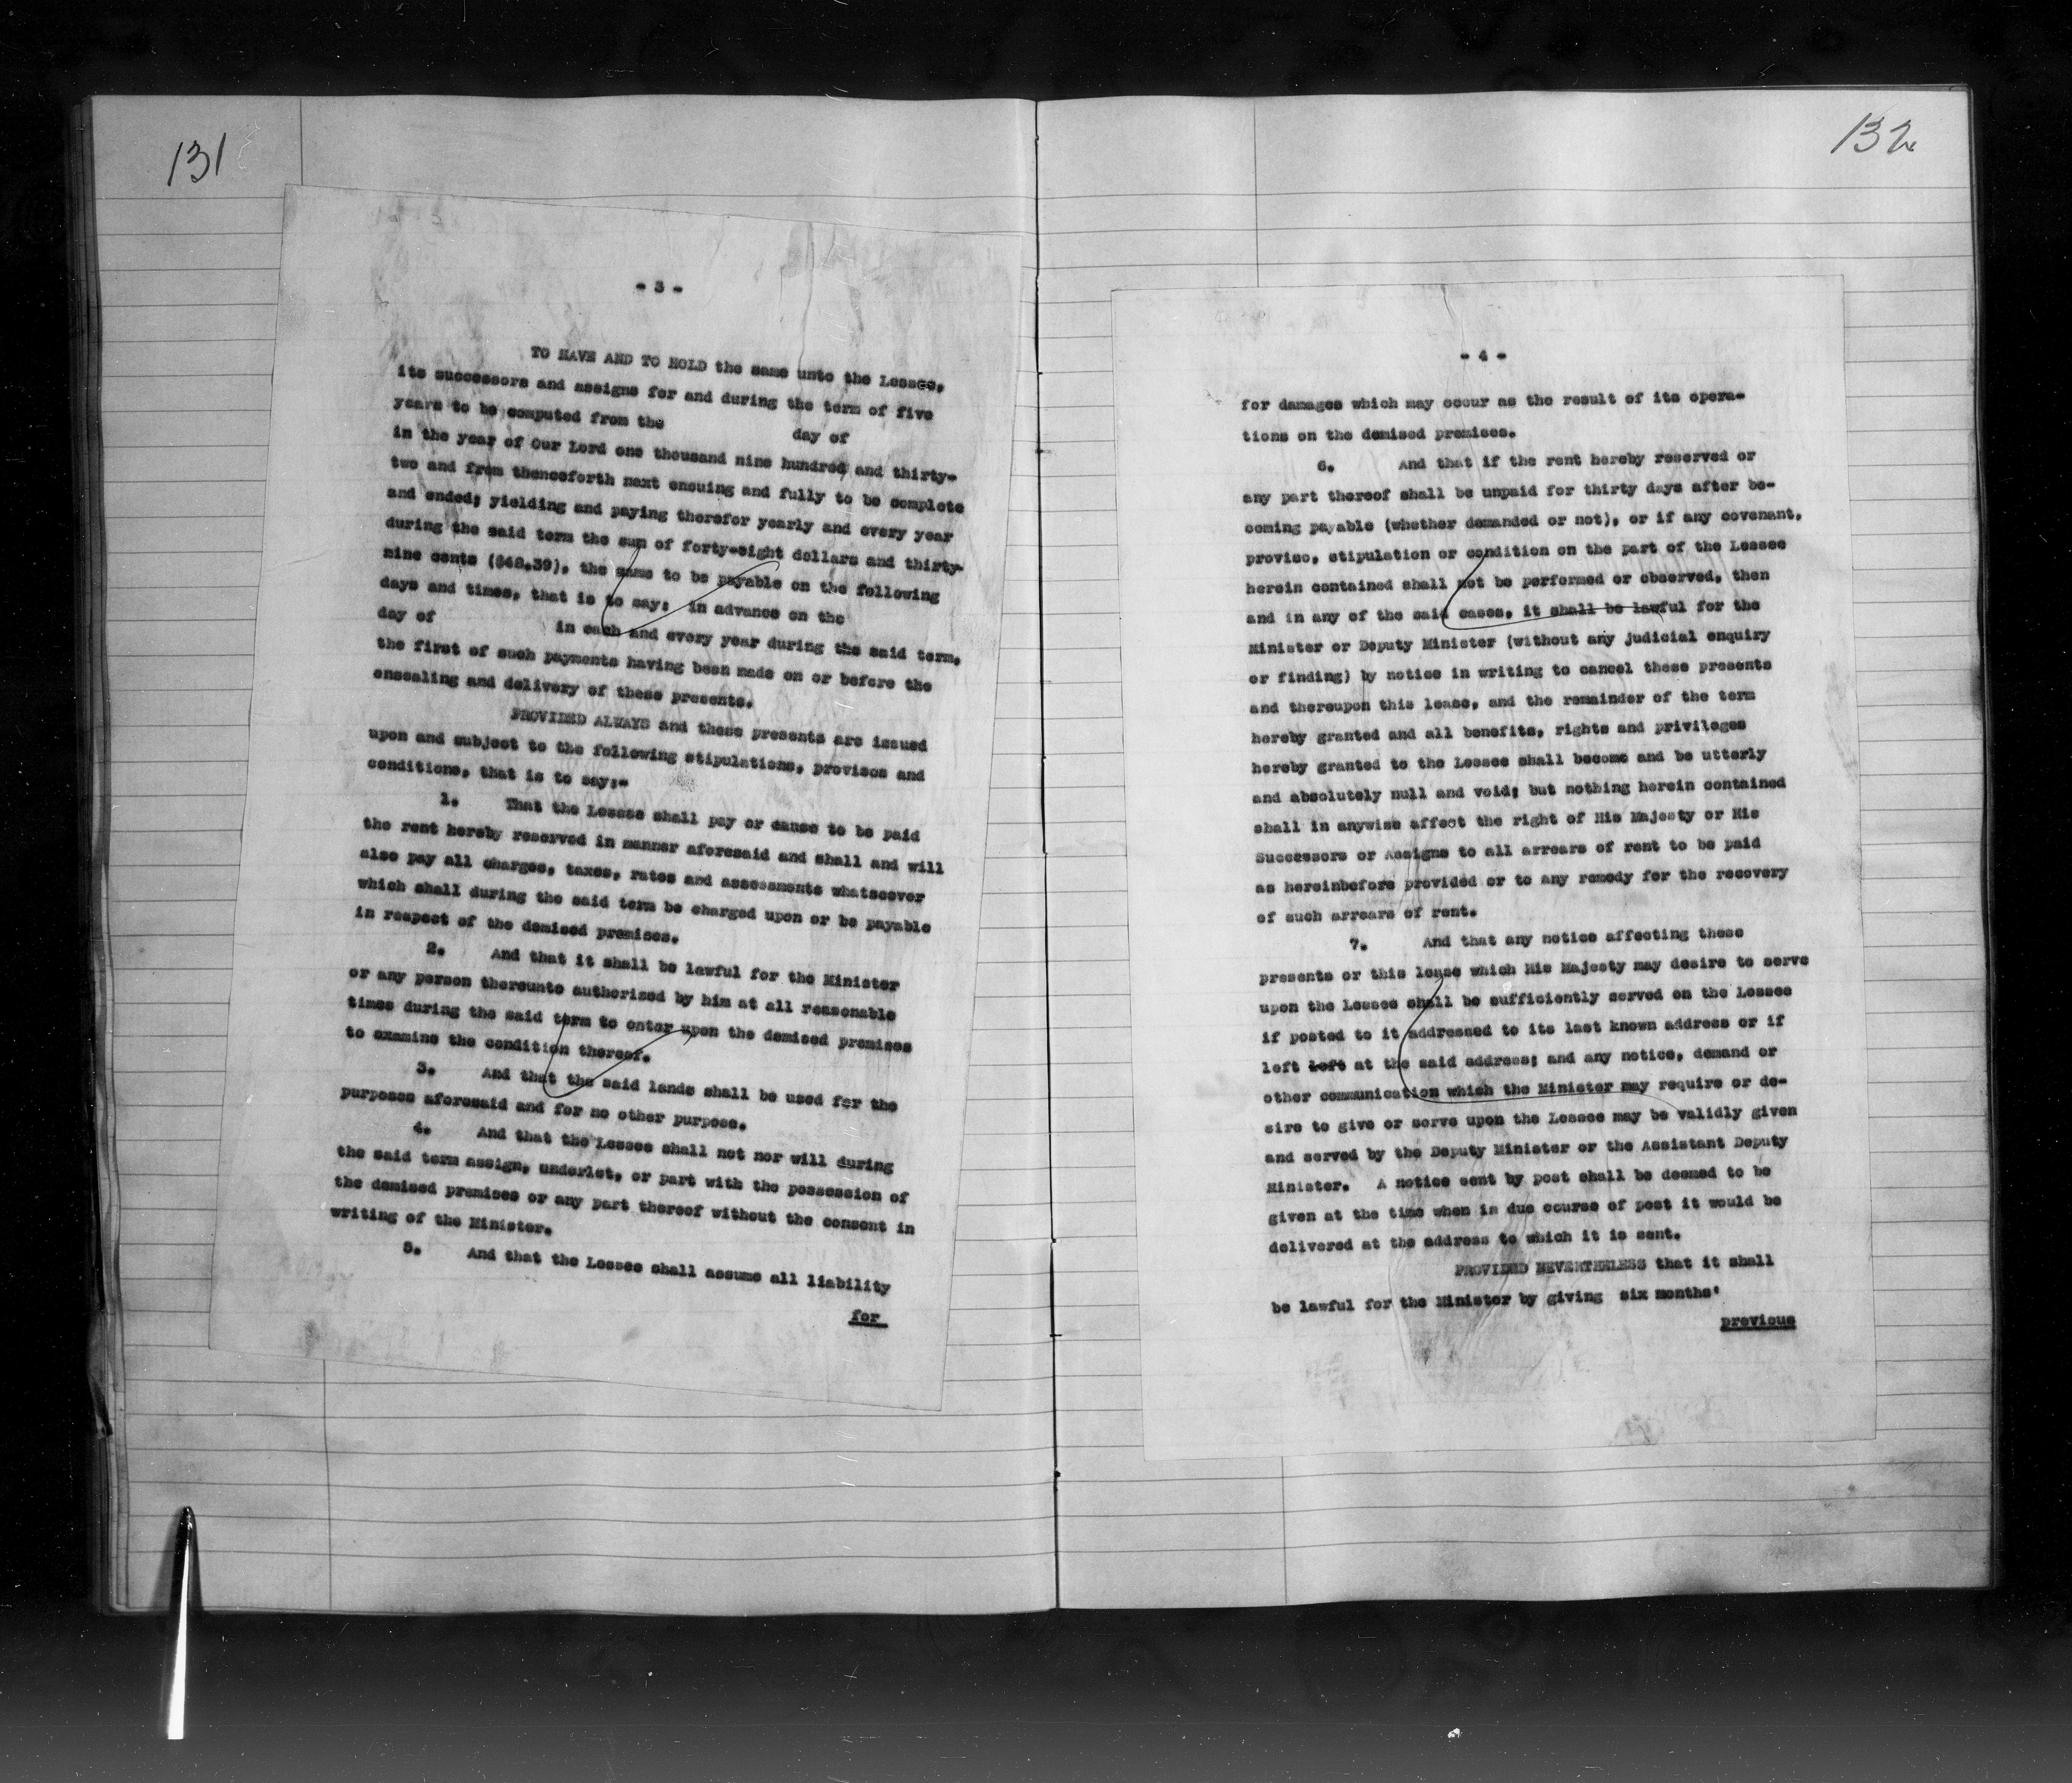 131
- 3 -
TO HAVE AND TO HOLD the same unto the Lessee,
its successors and assigns for and during the term of five
years to be computed from the day of
in the year of Our Lord one thousand nine hundred and thirty-
two and from thenceforth next ensuing and fully to be complete
and ended; yielding and paying therefor yearly and every year
during the said term the sum of forty-eight dollars and thirty-
nine cents ($48.39), the same to be payable on the following
days and times, that is to say: in advance on the
day of in each and every year during the said term,
the first of such payments having been made on or before the
ensealing and delivery of these presents.
PROVIDED ALWAYS and these presents are issued
upon and subject to the following stipulations, provisos and
conditions, that is to say:-
1. That the Lessee shall pay or cause to be paid
the rent hereby reserved in manner aforesaid and shall and will
also pay all charges, taxes, rates and assessments whatsoever
which shall during the said term be charged upon or be payable
in respect of the demised premises.
2. And that it shall be lawful for the Minister
or any person thereunto authorized by him at all reasonable
times during the said term to enter upon the demised premises
to examine the condition thereof.
3. And that the said lands shall be used for the
purposes aforesaid and for no other purpose.
4. And that the Lessee shall not nor will during
the said term assign, underlet, or part with the possession of
the demised premises or any part thereof without the consent in
writing of the Minister.
5. And that the Lessee shall assume all liability
for
132
- 4 -
for damages which may occur as the result of its opera-
tions on the demised premises.
6. And that if the rent hereby reserved or
any part thereof shall be unpaid for thirty days after be-
coming payable (whether demanded or not), or if any covenant,
proviso, stipulation or condition on the part of the Lessee
herein contained shall not be performed or observed, then
and in any of the said cases, it shall be lawful for the
Minister or Deputy Minister (without any judicial enquiry
or finding) by notice in writing to cancel these presents
and thereupon this lease, and the remainder of the term
hereby granted and all benefits, rights and privileges
hereby granted to the Lessee shall become and be utterly
and absolutely null and void; but nothing herein contained
shall in anywise affect the right of His Majesty or His
Successors or Assigns to all arrears of rent to be paid
as hereinbefore provided or to any remedy for the recovery
of such arrears of rent.
7. And that any notice affecting these
presents or this lease which His Majesty may desire to serve
upon the Lessee shall be sufficiently served on the Lessee
if posted to it addressed to its last known address or if
left left at the said address; and any notice, demand or
other communication which the Minister may require or de-
sire to give or serve upon the Lessee may be validly given
and served by the Deputy Minister or the Assistant Deputy
Minister. A notice sent by post shall be deemed to be
given at the time when in due course of post it would be
delivered at the address to which it is sent.
PROVIDED NEVERTHELESS that it shall
be lawful for the Minister by giving six months'
previous